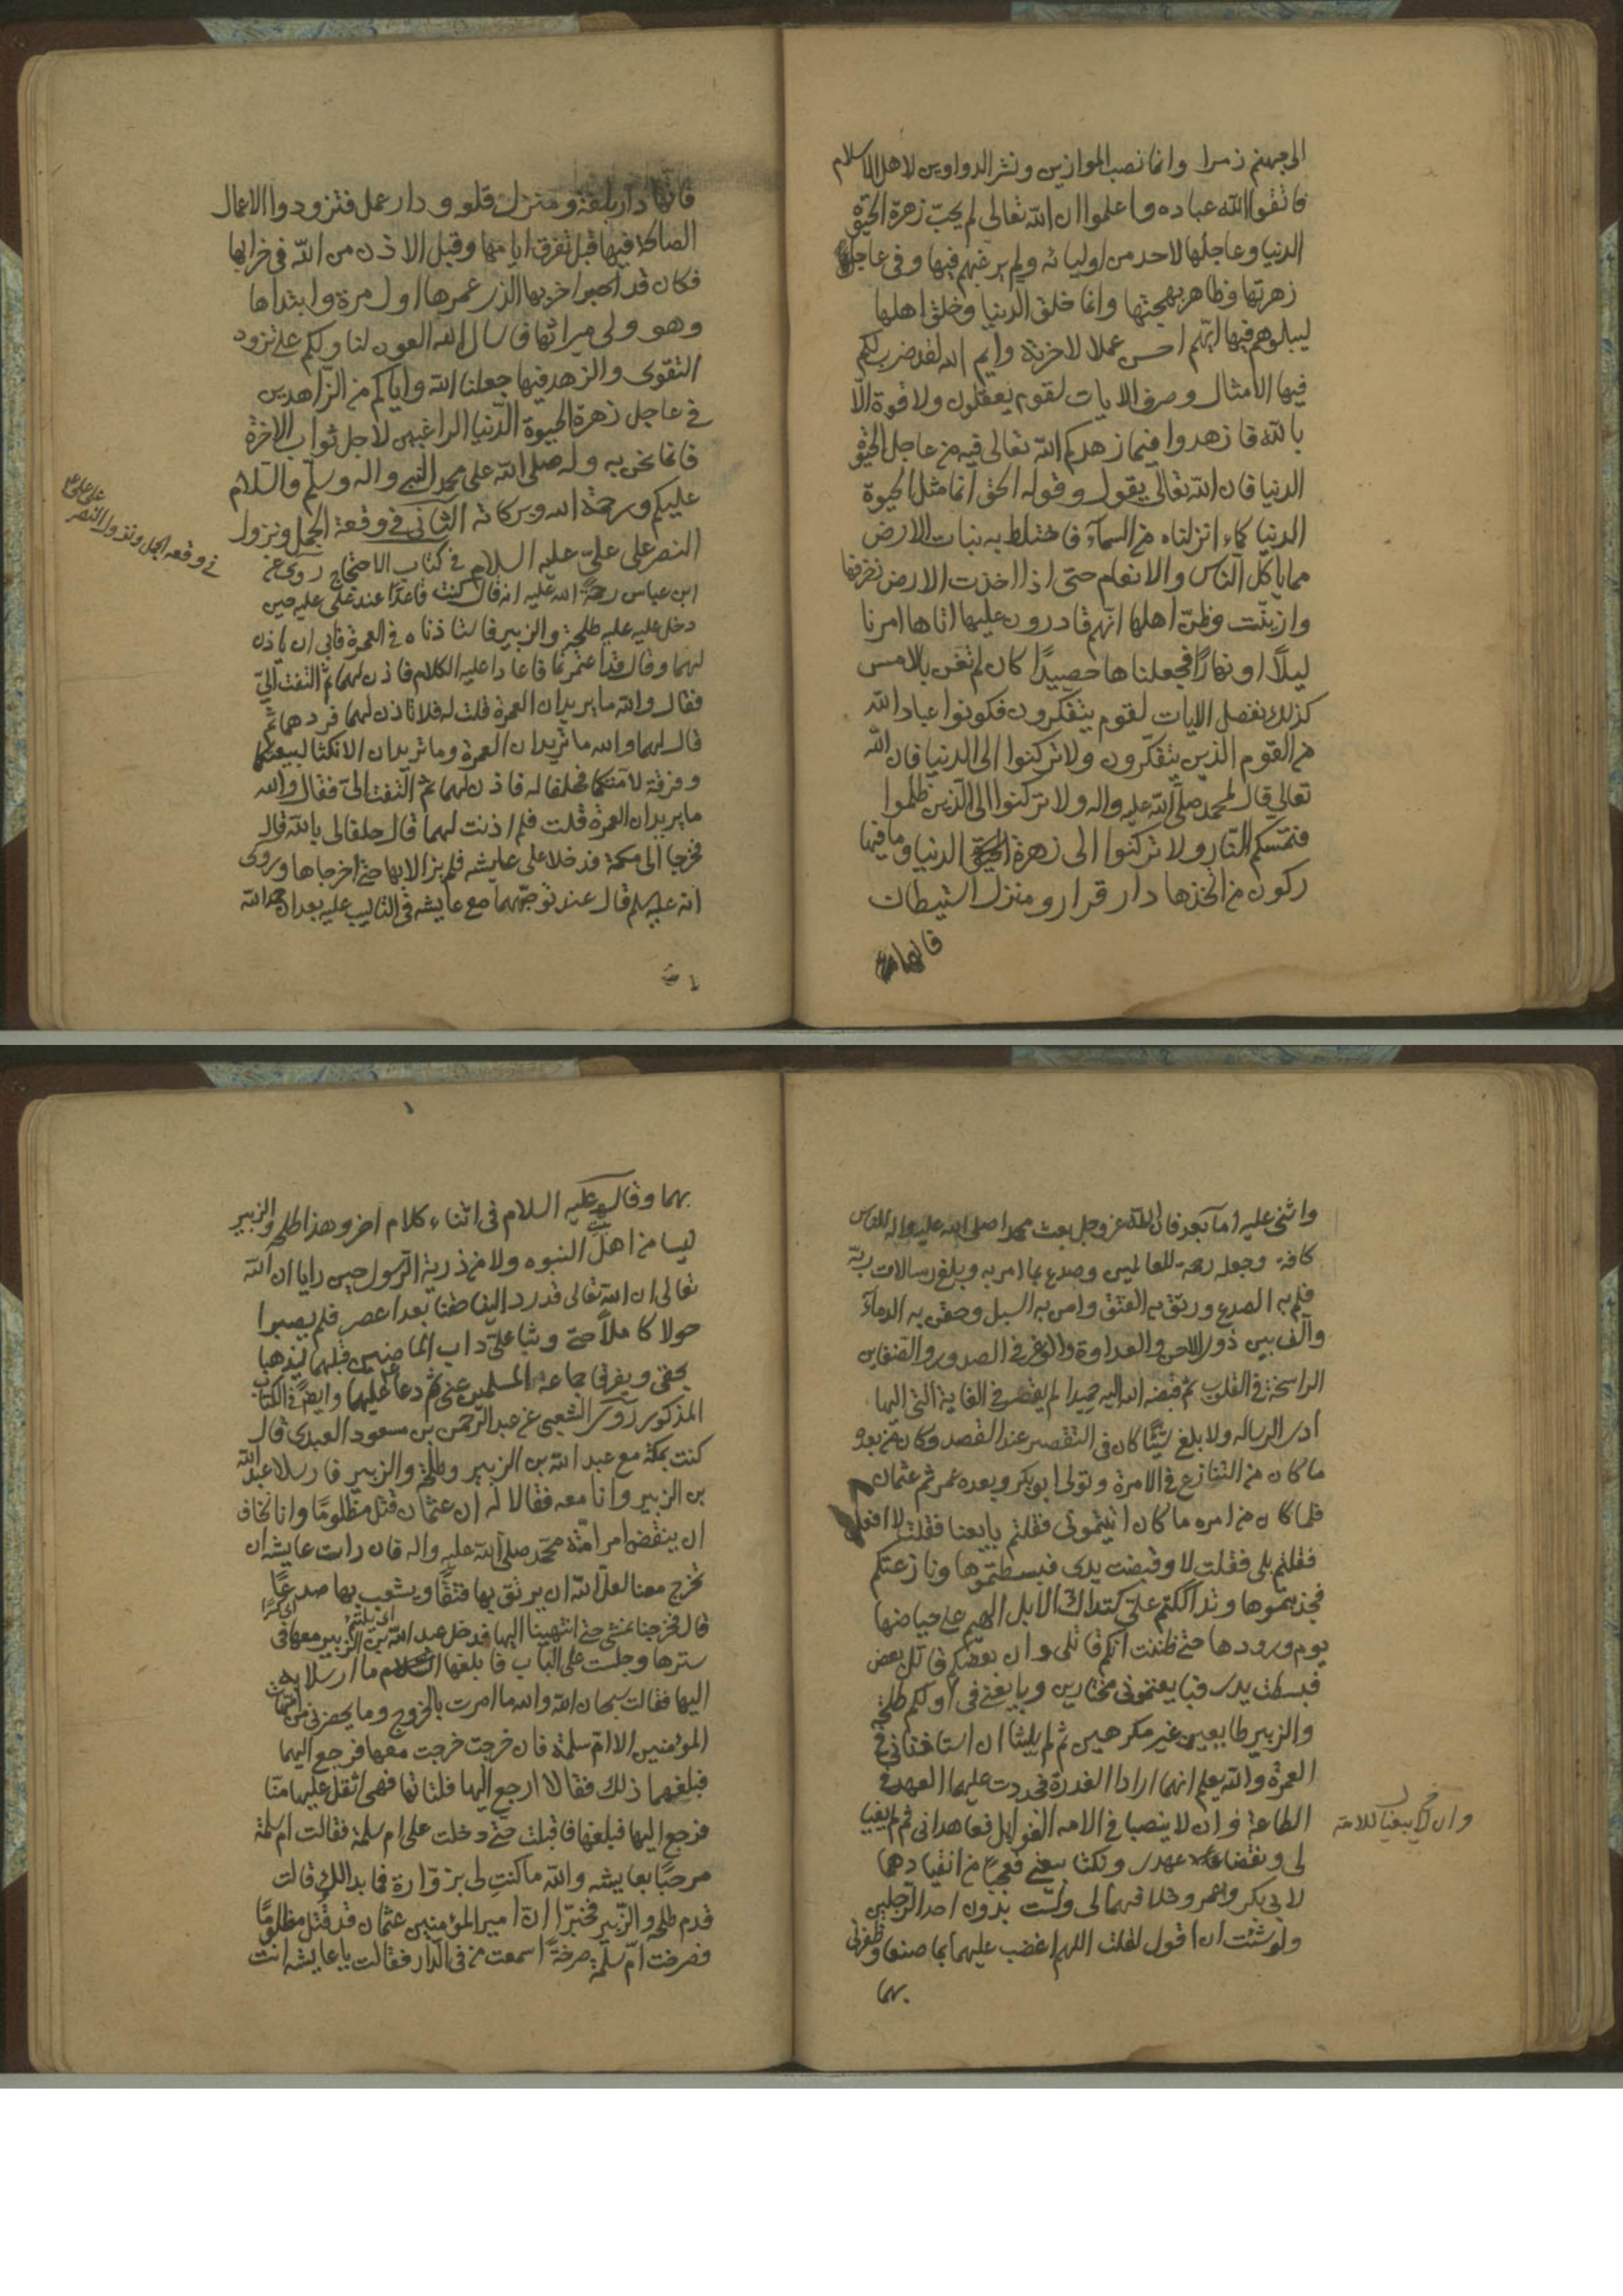 الى جهنم زمرا وانما نصب الموازين ونشر الدواوين لاهل الاسلام
فاتقوا الله عباده واعلموا ان الله تعالى لم يحب زهرة الحيوة
الدنيا وعاجلها لاحد من اوليائه ولم يرغبهم فيها وفى عاجل
زهرتها وظاهر بهجتها وانما خلق الدنيا وخلق اهلها
ليبلوهم فيها ايهم احسن عملا لاخرته وايم الله لقد ضرب لكم
فيها الامثال وصرف الايات لقوم يعقلون ولا قوة الّا
بالله فازهدوا فيما زهدكم الله تعالى فيه من عاجل الحيوة
الدنيا فان الله تعالى يقول وقوله الحق انما مثل الحيوة
الدنيا كماء انزلناه من السمآء فاختلط به نبات الارض
مما ياكل الناس والانعام حتى اذا اخذت الارض زخرفها
وازينّت وظنّ اهلها انهم قادرون عليها اتاها امرنا
ليلًا او نهارًا فجعلناها حصيدًا كان لم تغن بالامس
كذلك نفصل الايات لقوم يتفكرون فكونوا عباد الله
من القوم الذين يتفكّرون ولا تركنوا الى الدنيا فان الله
تعالى قال لمحمد صلى الله عليه واله ولا تركنوا الى الذين ظلموا
فتمسكم النار ولا تركنوا الى زهرة الحيوة الدنيا وما فيها
ركون من اتخذها دار قرار ومنزل استيطان
فانها دار
فانها دار بلغة ومنزل قلعة ودار عمل فتزودوا الاعمال
الصالحة فيها قبل تفرق ايامها وقبل الاذن من الله فى خرابها
فكان قد اخربها الذى عمرها اول مرة وابتداها
وهو ولى ميراثها فاسال الله العون لنا ولكم على تزود
التقوى والزهد فيها جعلنا الله واياكم من الزّاهدين
فى عاجل زهرة الحيوة الدّنيا الراغبين لاجل ثواب الاخرة
فانما نحن به وله صلى الله على محمد النبى واله وسلم والسلام
عليكم ورحمة الله وبركاته الثانى فى وقعة الجمل ونزول
النصر على علىّ عليه السلام فى كتاب الاحتجاج روى عن
ابن عباس رحمة الله عليه انه قال كنت قاعدًا عند على عليه حين
دخل عليه طلحة والزبير فاستاذناه فى العمرة فابى ان ياذن
لهما وقال قد اعتمرتما فاعادا عليه الكلام فاذن لهما ثم التفت الىّ
فقال والله ما يريدان العمرة قلت له فلا تاذن لهما فردهما ثم
قال لهما والله ما تريدان العمرة وما تريدان الا نكثا لبيعتكما
وفرقة لامتكما فحلفا له فاذن لهما ثم التفت الىّ فقال والله
ما يريدان العمرة قلت فلم اذنت لهما قال حلفا لى بالله قال
فخرجا الى مكة فدخلا على عايشه فلم يزالا بها حتى اخرجاها وروى
انه عليه سلم قال عند توجّههما مع عايشه فى التاليب عليه بعد ان حمد الله
فى وقعه الجمل ونزول النصر
على على ع
واثنى عليه امّا بعد فان الله عز وجل بعث محمدا صلى الله عليه واله للناس
كافة وجعله رحمة للعالمين وصدع بما امر به وبلغ رسالات ربّه
فلم به الصدع ورتق به الفتق وامن به السبل وحقن به الدماء
والف بين ذوى الاحن والعداوة والوغر فى الصدور والضغاين
الراسخة فى القلوب ثم قبضه الله اليه حميدا لم يقصر فى الغاية التى اليها
ادى الرساله ولا بلغ شيئًا كان فى التقصير عند القصد وكان من بعده
ما كان من التنازع فى الامرة وتولى ابو بكر وبعده عمر ثم عثمان
فلما كان من امره ما كان اتيتمونى فقلتم بايعنا فقلت لا افعل
فقلتم بلى فقلت لا وقبضت يدى فبسطتموها ونازعتكم
فجذبتموها وتداككتم علىّ كتداك الابل الهيم على حياضها
يوم ورودها حتى ظننت انكم قاتلى وان بعضكم قاتل بعض
فبسطت يدى فبايعتمونى مختارين وبايعنى فى اولكم طلحة
والزبير طايعين غير مكرهين ثم لم يلبثا ان استاذنانى فى
العمرة والله يعلم انهما ارادا الغدرة فجددت عليهما العهد فى
الطاعة وان لا ينصبا فى الامه الغوايل فعاهدانى ثم لم يفيا
لى ونقضا عهدى ونكثا بيعتى فعجبًا من انقيادهما
لابى بكر وعمر وخلافهما لى ولست بدون احد الرّجلين
ولو شئت ان اقول لقلت اللهم اغضب عليهما بما صنعا وظفرنى
بهما
وان لا يبغيا للامة
بهما وقال عليه السلام فى اثناء كلام اخر وهذا طلحه والزبير
ليسا من اهل بيت النبوه ولا من ذرية الرسول حين رايا ان الله
تعالى ان الله تعالى قد رد الينا حقنا بعد اعصر فلم يصبرا
حولا كاملًا حتى وثبا علىّ داب الماضين قبلهما ليذهبا
بحقى ويفرقا جماعة المسلمين عنى ثم دعا عليهما وايضًا فى الكتاب
المذكور روى الشعبى عن عبد الرّحمن بن مسعود العبدى قال
كنت بمكة مع عبد الله بن الزبير وطلحة والزبير فارسلا عبد الله
بن الزبير وانا معه فقالا له ان عثمان قتل مظلومًا وانا نخاف
ان ينقض امر امّة محمّد صلى الله عليه واله فان رات عايشه ان
تخرج معنا لعلّ الله ان يرتق بها فتقًا ويشعب بها صدعًا
قال فخرجنا نمشى حتى انتهينا اليها فدخل عبد الله بن الزبير معها فى
سترها وجلست على الباب فابلغها ما ارسلا به
اليها فقالت سبحان الله والله ما امرت بالخروج وما يحضرنى من امهات
المؤمنين الا امّ سلمة فان خرجت خرجت معها فرجع اليهما
فبلغهما ذلك فقالا ارجع اليها فلتاتها فهى اثقل عليها منّا
فرجع اليها فبلغها فاقبلت حتى دخلت على ام سلمة فقالت ام سلمة
مرحبًا بعايشه والله ما كنتِ لى بزوّارة فما بدا لك قالت
قدم طلحه والزّبير فخبرّا ان امير المؤمنين عثمان قد قُتل مظلومًا
فصرخت امّ سلمة صرخةً اسمعت من فى الدّار فقالت يا عايشه انت